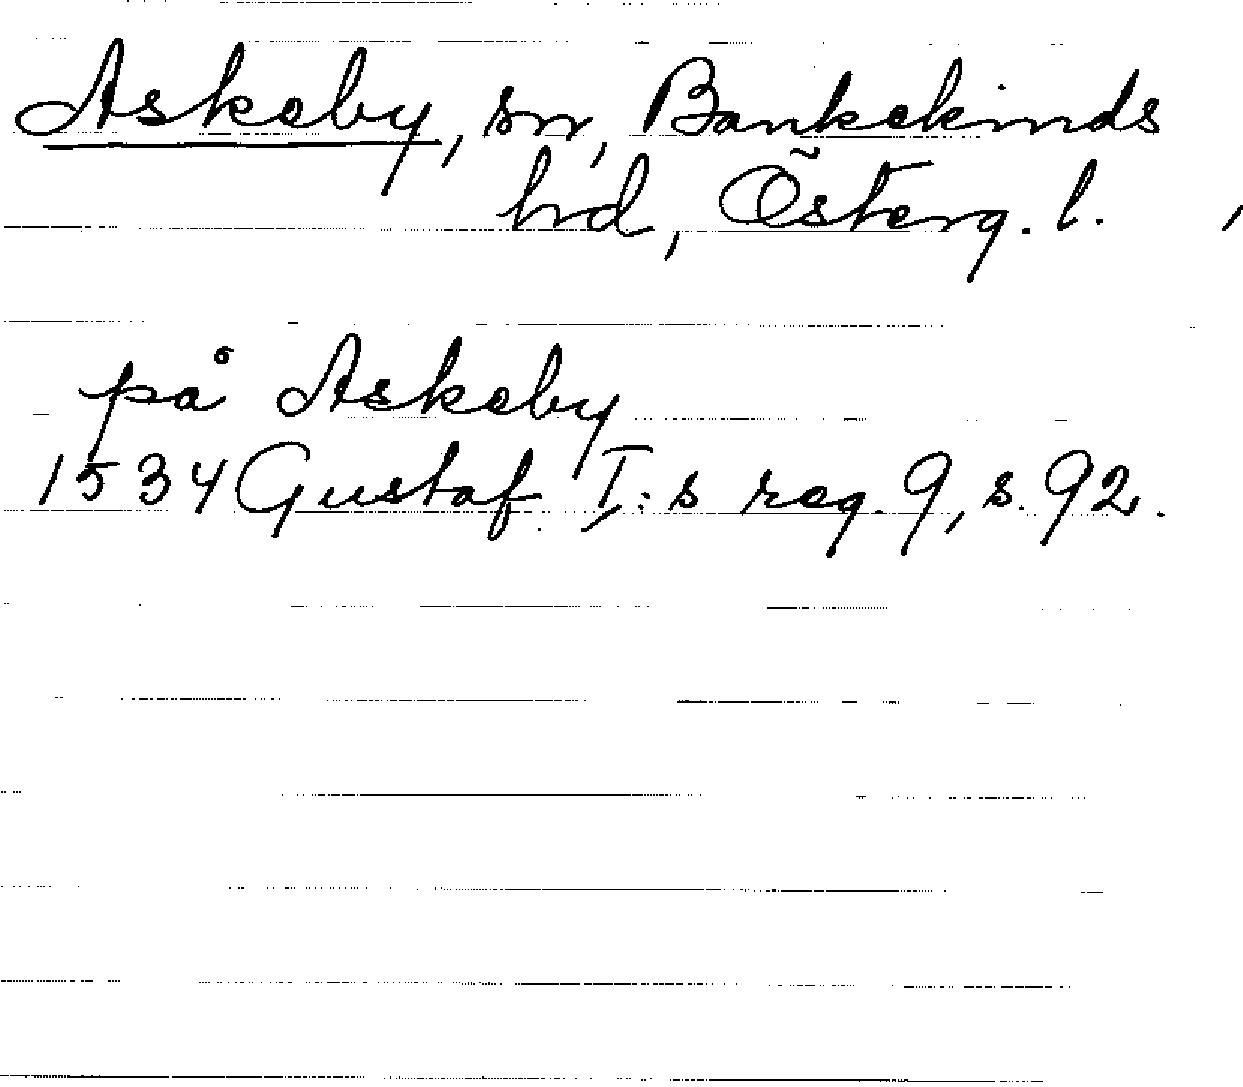 Askeby, sn, Bankekinds
hd, Österg. l.
på Askeby
1534 Gustaf I:s reg. 9, s. 92.